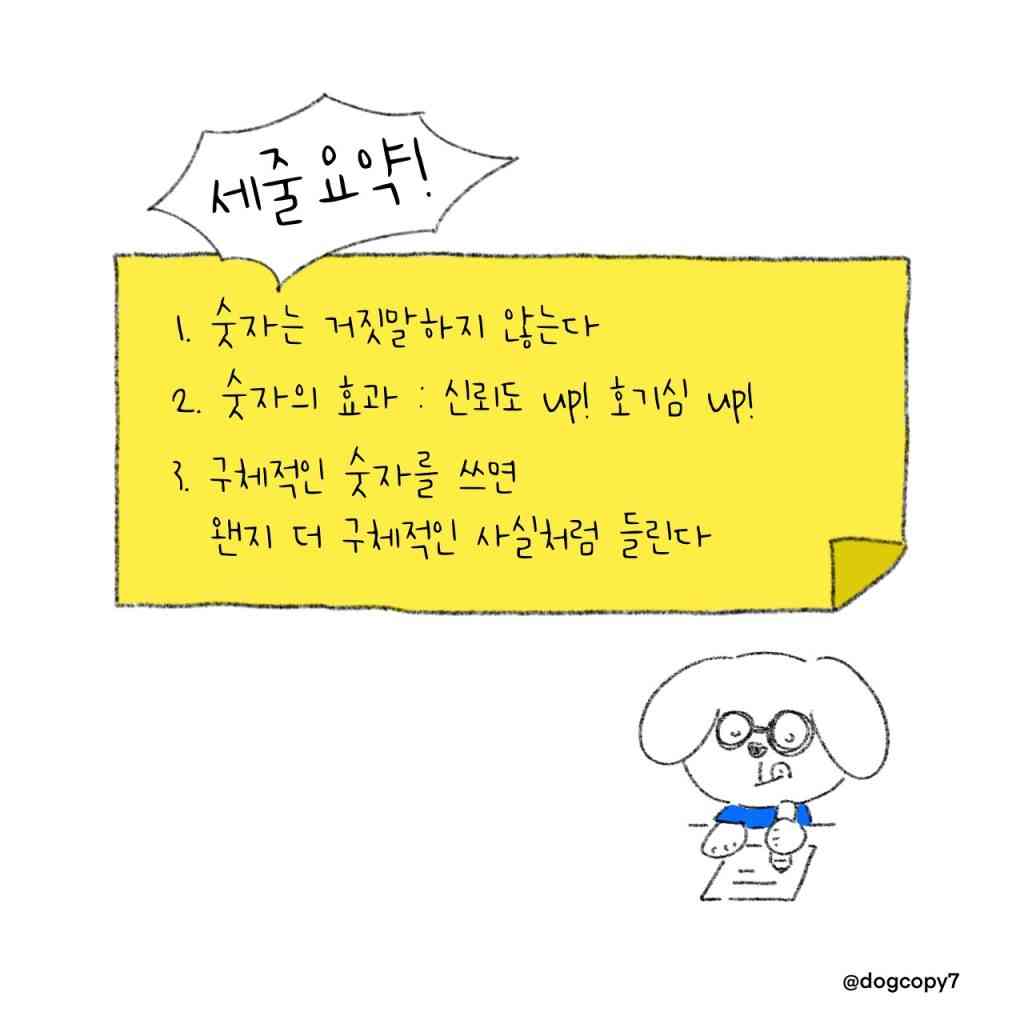 세줄요약!
1. 숫자는 거짓말하지 않는다
2. 숫자의 효과 : 신뢰도 up! 호기심 up!
3. 구체적인 숫자를 쓰면
왠지 더 구체적인 사실처럼 들린다
@dogcopy7